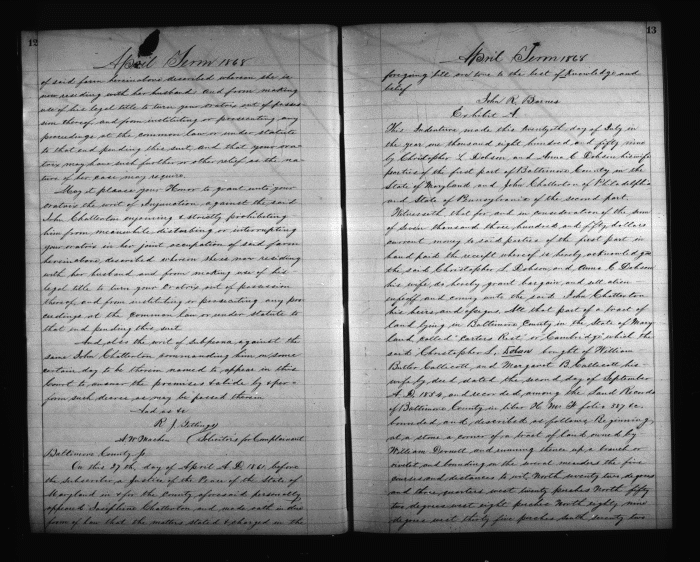 12
April Term 1868
of said farm hereinabove described wherein she is
now residing with her husband and from making
use of his legal title to turn your Oratrix out of posses-
sion thereof and from instituting or prosecuting any
proceedings at the common law or under statute
to that end pending this suit, and that your ora-
trix may have such further or other relief as the na-
ture of her case may require.
May it please your Honor to grant unto your
oratrix the writ of Injunction against the said
John Chatterton enjoining & strictly prohibiting
him from meanwhile disturbing or interrupting
your oratrix in her joint occupation of said farm
hereinabove described wherein she is now residing
with her husband and from making use of his
legal title to turn your Oratrix out of possession
thereof and from instituting or prosecuting any pro-
ceedings at the common law or under statute to
that end pending this suit
And also the writ of subpoena against the
same John Chatterton commanding him on some
certain day to be therein named to appear in this
Court to answer the premises & abide by & per-
form such decree as may be passed therein
And as &c
R J Gittings
A W Machen Solicitors for Complainant
Baltimore County Sc
On this 27th day of April A.D. 1861 before
the subscriber a Justice of the Peace of the State of
Maryland in & for the County aforesaid personally
appeared Josephine Chatterton and made oath in due
form of law that the matters stated & charged in the
13
April Term 1868
foregoing bill are true to the best of knowledge and
belief
John R. Barnes
Exhibit A
This Indenture made this twentyth day of July in
the year one thousand eight hundred and fifty nine
by Christopher L Dobson and Anna C Dobson his wife
parties of the first part of Baltimore County in the
State of Maryland and John Chatterton of Philadelphia
and State of Pennsylvania of the second part
Witnesseth that for and in consideration of the sum
of seven thousand three hundred and fifty dollars
current money to said parties of the first part in
hand paid the receipt whereof is hereby acknowledged
the said Christopher L Dobson and Anna C Dobson
his wife do hereby grant bargain and sell alien
enfeoff and convey unto the said John Chatterton
his heirs and assigns All that part of a tract of
land lying in Baltimore County in the State of Mary
land called "Carters Rest" or Cambridge which the
said Christopher L. bought of William
Butler and Margaret B his
wife by deed dated the second day of September
A.D. 1854, and recorded among the Land Records
of Baltimore County in liber H M F folio 387 &c.
bounded and described as follows Beginning
at a stone a corner of a tract of land owned by
William and running thence up a branch or
rivulet and bounding on the several meanders the five
courses and distances to wit North seventy two degrees
and three quarters west twenty perches North fifty
two degrees west eight perches North eighty nine
degrees west thirty five perches South seventy two